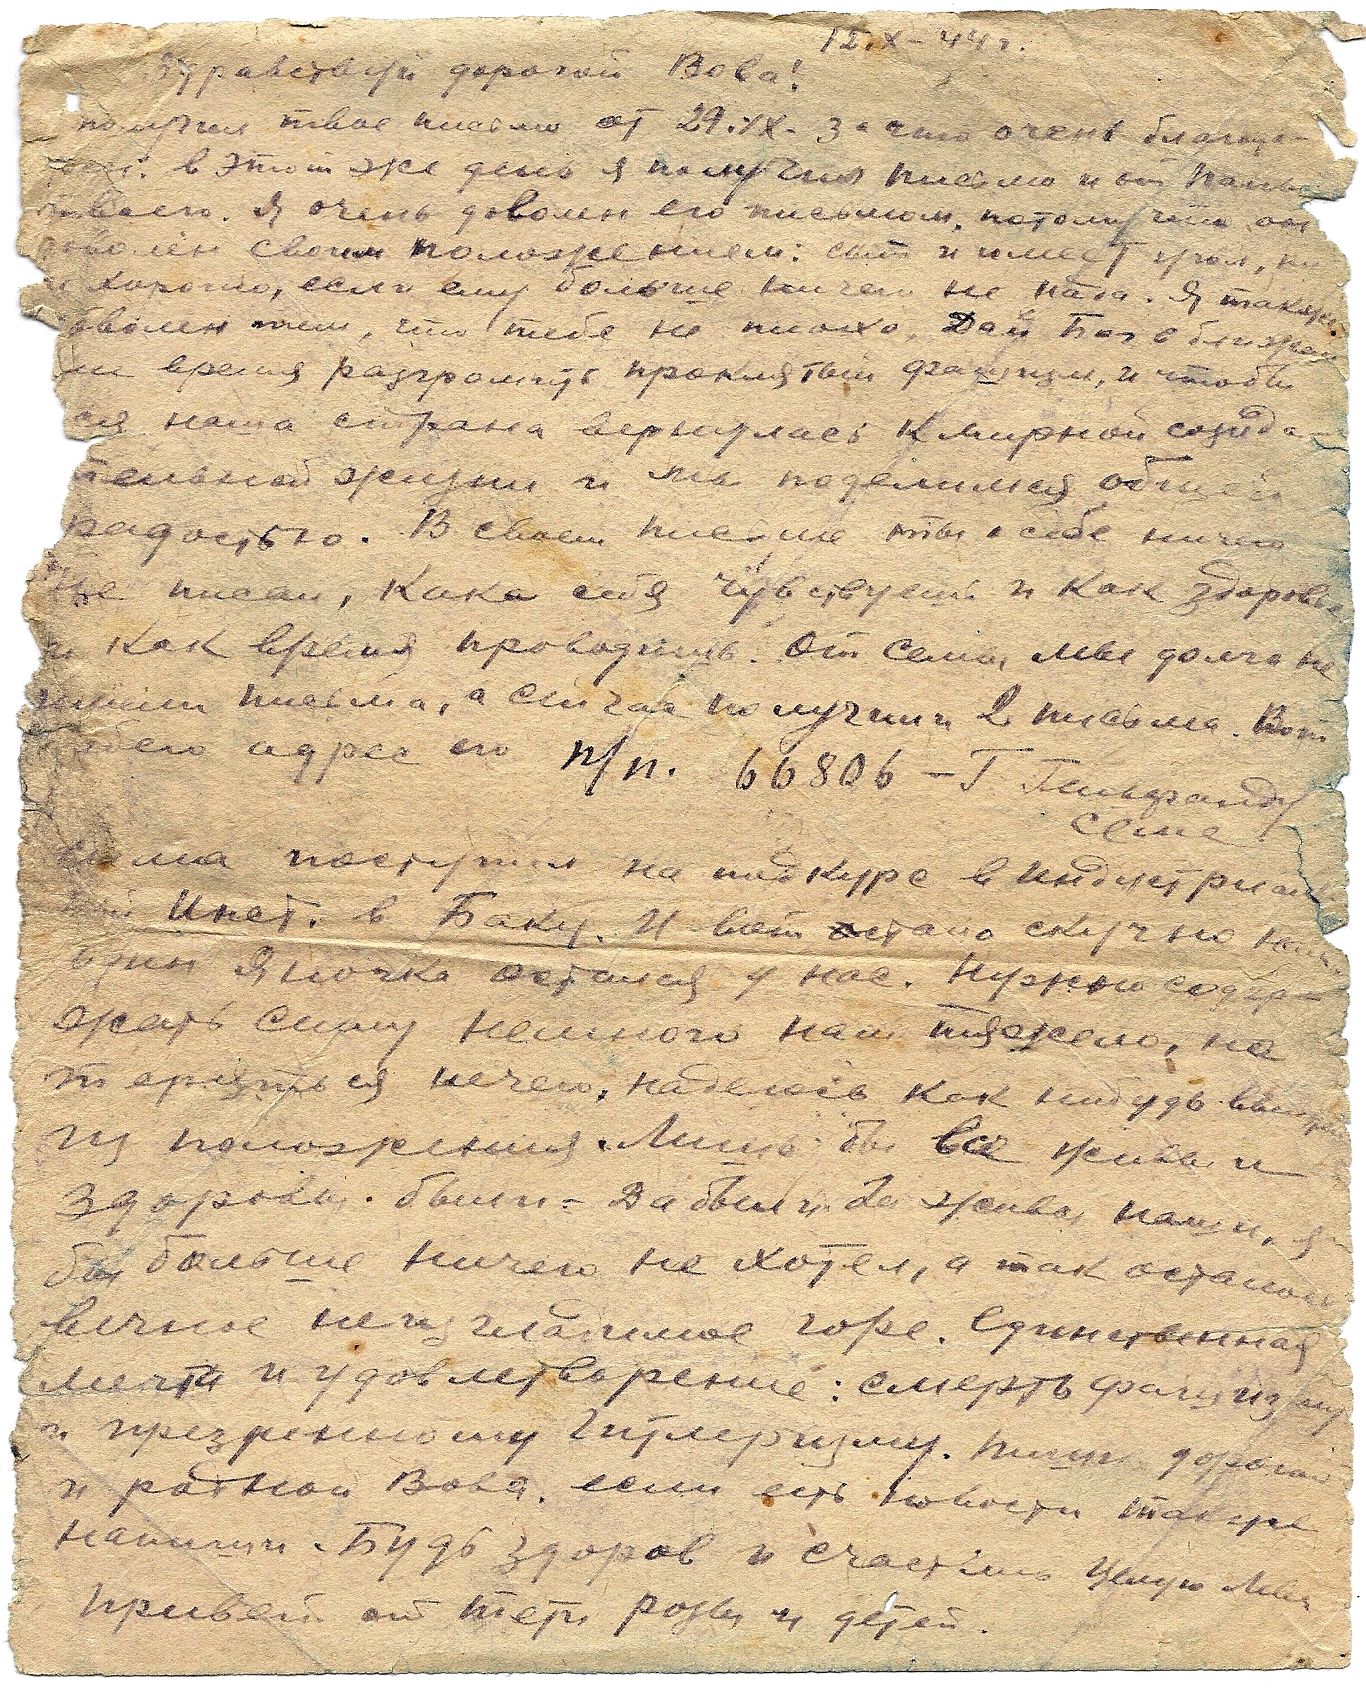 12.X-44 г.
Здравствуй дорогой Вова!
получил твое письмо от 29.IX. за что очень благода-
рен. в этот же день я получил письмо и от папы
твоего. Я очень доволен его письмом, потому что он
доволен своим положением: сыт и имеет угол, ну
и хорошо, если ему больше ничего не надо. Я также
доволен тем, что тебе не плохо. Дай Бог в ближай
ше время разгромить проклятый фашизм, и чтобы
вся наша страна вернулась к мирной созида-
тельной жизни и мы поделимся общей
радостью. В своем письме ты о себе ничего
не писал, как себя чувствуешь и как здоровье
и как время проводишь. От Семы мы долго не
имели письма, а сейчас получили 2 письма. Вот
адрес его п/п. 66806-Г Гельфанду
Семе
поступил на подкурс в Индустриаль
ный Инст. в Баку. И вот стало скучно
один Яночка остался у нас. Нужно содер-
жать Симу немного нам тяжело, но
теряться нечего, надеюсь как нибудь выйдем
из положения. Лишь бы все живы и
здоровы были - Да были бы живы наши, я
бы больше ничего не хотел, а так осталось
вечное неизгладимое горе. Единственная
мечта и удовлетворение: смерть фашизму
и презренному Гитлеризму. Пиши дорогой
и родной Вова, если есть новости также
напиши. Будь здоров и счастлив целую
Привет от тети Розы и детей.